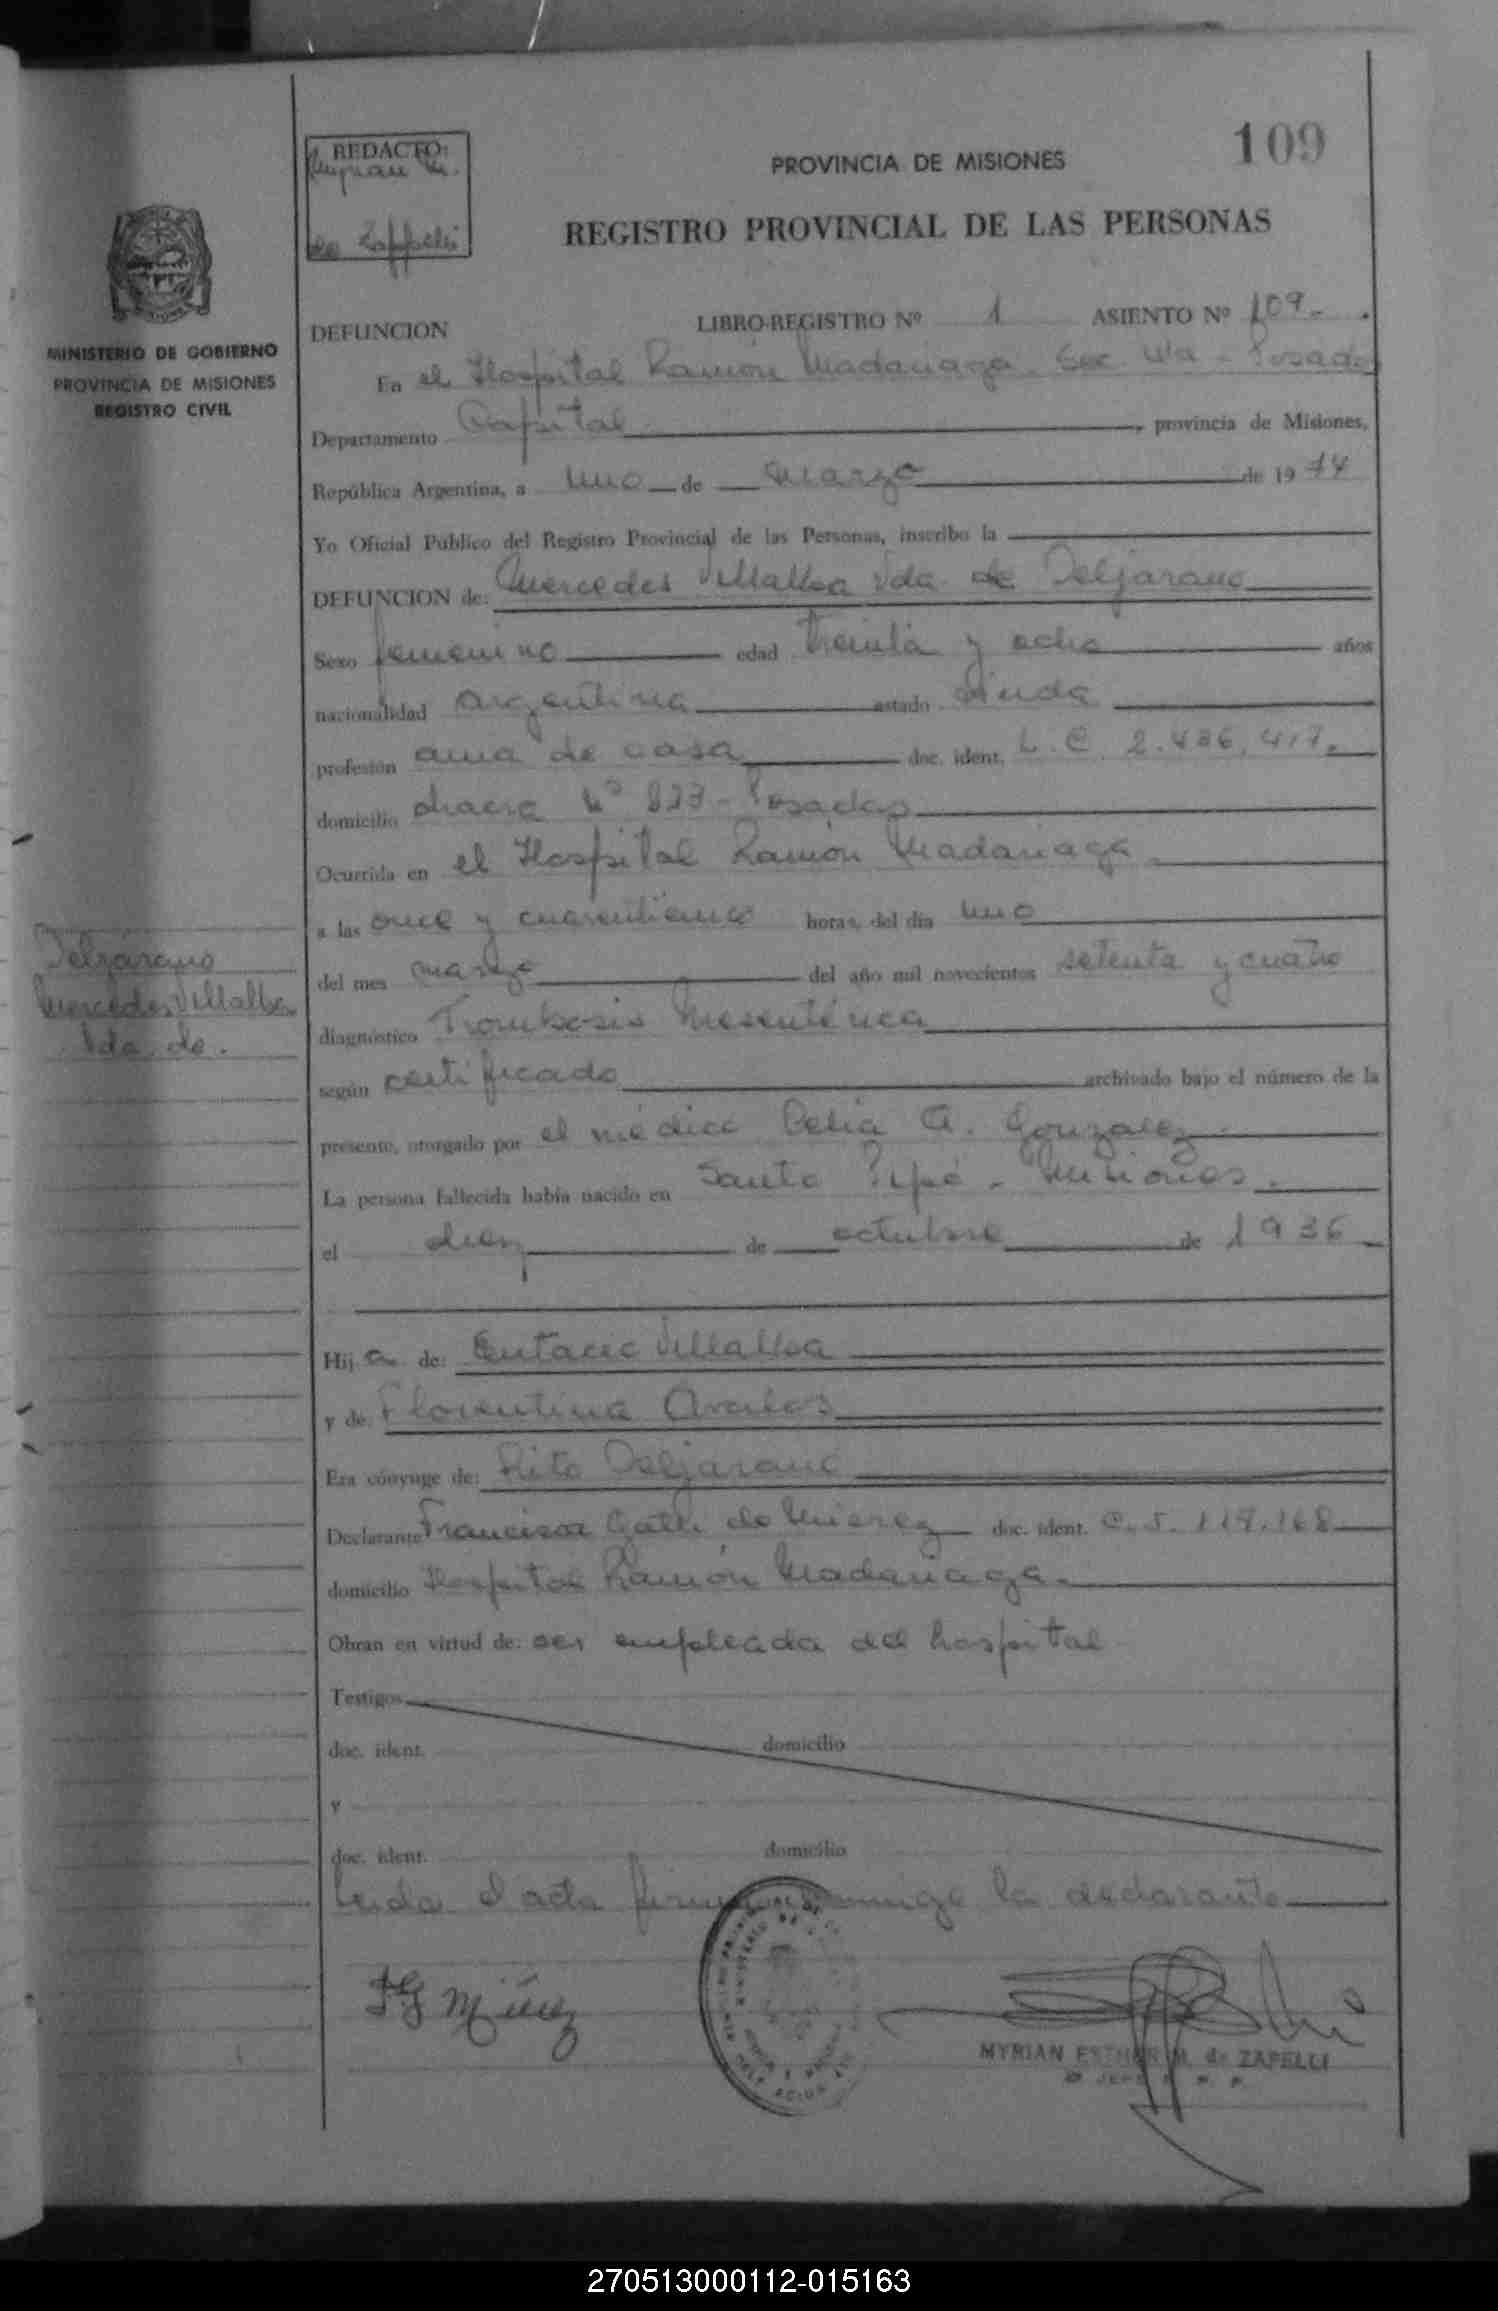 109
REDACTO:
Myrian M.
de Zappelli
PROVINCIA DE MISIONES
REGISTRO PROVINCIAL DE LAS PERSONAS
MINISTERIO DE GOBIERNO
PROVINCIA DE MISIONES
REGISTRO CIVIL
DEFUNCION LIBRO-REGISTRO Nº 1 ASIENTO Nº 109-.
En el Hospital Ramón Madariaga. Sec. - Posadas
Departamento Capital, provincia de Misiones,
República Argentina, a uno de marzo de 1974
Yo Oficial Público del Registro Provincial de las Personas, inscribo la
DEFUNCION de: Mercedes Villalba Vda. de Deljarano
Sexo femenino edad treinta y ocho años
nacionalidad argentina estado viuda
profesión ama de casa doc. ident. L.C. 2.436.417.
domicilio chacra Nº - Posadas
Ocurrida en el Hospital Ramón Madariaga
a las once y cuarenticinco horas, del día uno
del mes marzo del año mil novecientos setenta y cuatro
diagnóstico Trombosis Mesentérica
según certificado archivado bajo el número de la
presente, otorgado por el médico Celia A. Gonzalez
La persona fallecida había nacido en Santo Pipó - Misiones.
el diez de octubre de 1936
Hija de: Eutacio Villalba
y de: Florentina Avalos
Era cónyuge de: Rito Deljarano
Declarante Francisca Gatti de Mierez doc. ident. C.I. 117.168
domicilio Hospital Ramón Madariaga.
Obran en virtud de: ser empleada del hospital
Testigos
doc. ident. domicilio
y
doc. ident. domicilio
Leida el acta firma conmigo la declarante
Deljarano
Mercedes Villalba
Vda. de.
FG Miérez
MYRIAN ESTHER M. de ZAPELLI
270513000112-015163